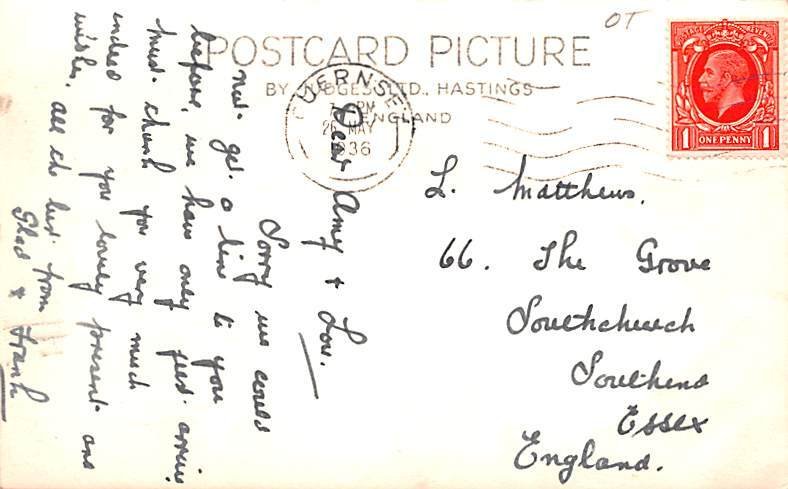 OT
POSTCARD PICTURE
BY JUDGES LTD., HASTINGS
ENGLAND
GUERNSEY
7 PM
26 MAY
1936
POSTAGE REVENUE
1 ONE PENNY 1
L. Matthews.
66. The Grove
Southchurch
Southend
Essex
England.
Dear Amy & Lou.
Sorry we could
not get a line to you
before, we have only just arrive.
must thank you very much
indeed for you lovely present and
wishes. all the best from
Glad & Frank